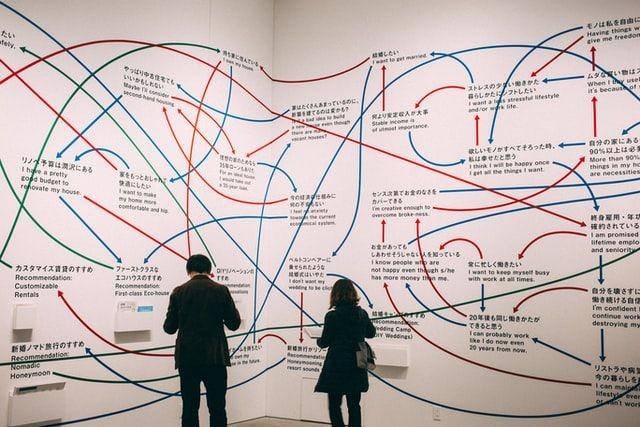 たい
持ち家に住んでいる
I own my house.
やっぱり中古住宅でも
いいかもしれない
Maybe I'll consider
second-hand housing
結婚したい
I want to get married.
モノは私を自由に
Having things w
give me freedom
ストレスの少ない働きかた
暮らしかたにシフトしたい
I want a less stressful lifestyle
and/or work life.
ムダな買い物はス
When I buy usel
it's because of s
家はたくさんあまっているのに、
新築を建てるのは変かも?
Is it a bad idea to build
a new house even though
there are many
vacant houses?
何より安定収入が大事
Stable income is
of utmost importance.
理想の家のためなら
35年ローンもあり
For an ideal house
I would take out
a 35-year loan.
リノベ予算は潤沢にある
I have a pretty
good budget to
renovate my house.
家をもっとおしゃれで
快適にしたい
I want to make
my home more
comfortable and hip.
欲しいモノがすべてそろった時、
私は幸せだと思う
I think I will be happy once
I get all the things I want.
自分の家にある
90%以上は必
More than 90%
things in my ho
are necessities
今の経済の仕組みに
何の不安もない
I feel no anxiety
towards the current
economical system.
センス次第でお金のなさを
カバーできる
I'm creative enough to
overcome broke-ness.
終身雇用・年功
確約されている
I am promised
lifetime emplo
and seniority
お金があっても
しあわせそうじゃない人を知っている
I know people who are
not happy even though s/he
has more money than me.
常に忙しく働きたい
I want to keep myself busy
with work at all times.
ベルトコンベアーに
乗せられたような
結婚式はいやだ
I don't want my
wedding to be
カスタマイズ賃貸のすすめ
Recommendation:
Customizable
Rentals
ファーストクラスな
エコハウスのすすめ
Recommendation:
First-class Eco-house
DIYリノベーションの
自分を壊さずに
働き続ける自
I'm confident I
continue work
destroying m
20年後も同じ働きかたが
できると思う
I can probably work
like I do now even
20 years from now.
Recommendation:
Wedding Camp
(DIY Weddings)
新婚ノマド旅行のすすめ
Recommendation:
Nomadic
Honeymoon
in the future.
Recommendation:
resort sounds
リストラや病気
今の暮らしを
I can maintain
lifestyle even
can't work